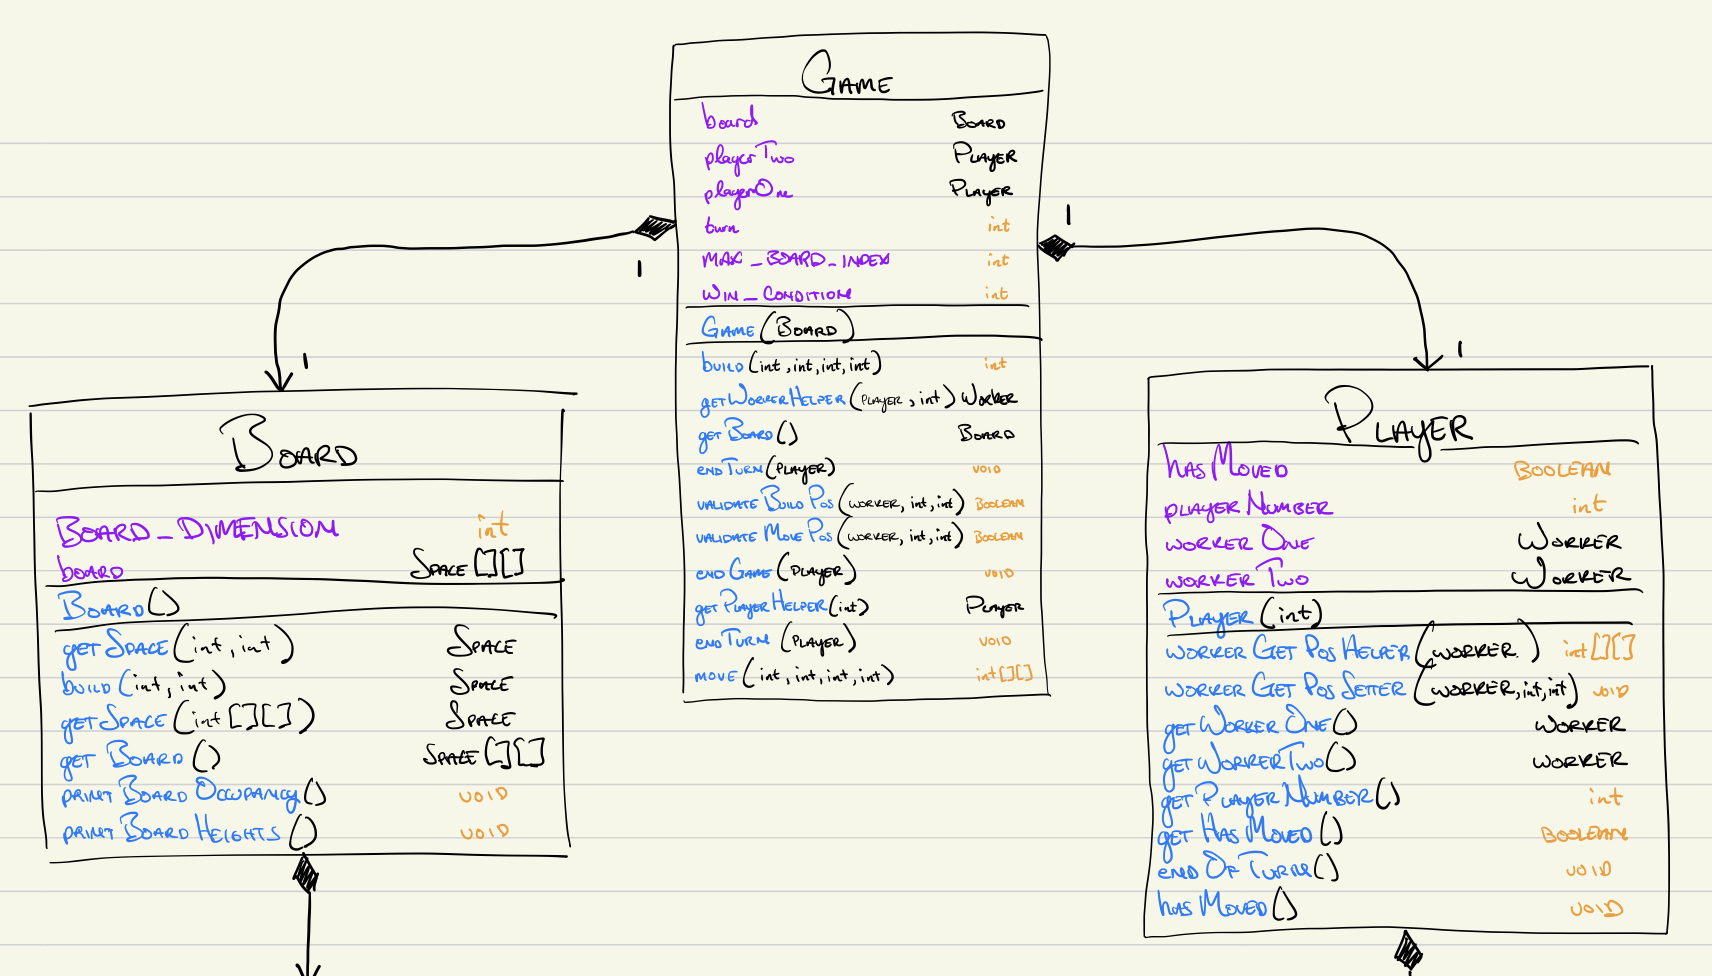 GAME
board BOARD
playerTwo PLAYER
playerOne PLAYER
turn int
MAX_BOARD_INDEX int
WIN_CONDITION int
GAME (BOARD)
build (int, int, int, int) int
getWorkerHelper (PLAYER, int) Worker
getBoard () BOARD
endTurn (PLAYER) void
validateBuildPos (worker, int, int) Boolean
validateMovePos (worker, int, int) Boolean
endGame (PLAYER) void
getPlayerHelper (int) Player
endTurn (PLAYER) void
move (int, int, int, int) int[][]
1
1
1
1
BOARD
BOARD_DIMENSION int
board SPACE [][]
BOARD ()
getSpace (int, int) SPACE
build (int, int) SPACE
getSpace (int [][]) SPACE
getBoard () SPACE [][]
printBoardOccupancy () void
printBoardHeights () void
PLAYER
hasMoved BOOLEAN
playerNumber int
workerOne WORKER
workerTwo WORKER
PLAYER (int)
workerGetPosHelper (worker) int[][]
workerGetPosSetter (worker, int, int) void
getWorkerOne () WORKER
getWorkerTwo () WORKER
getPlayerNumber () int
getHasMoved () BOOLEAN
endOfTurn () void
hasMoved () void